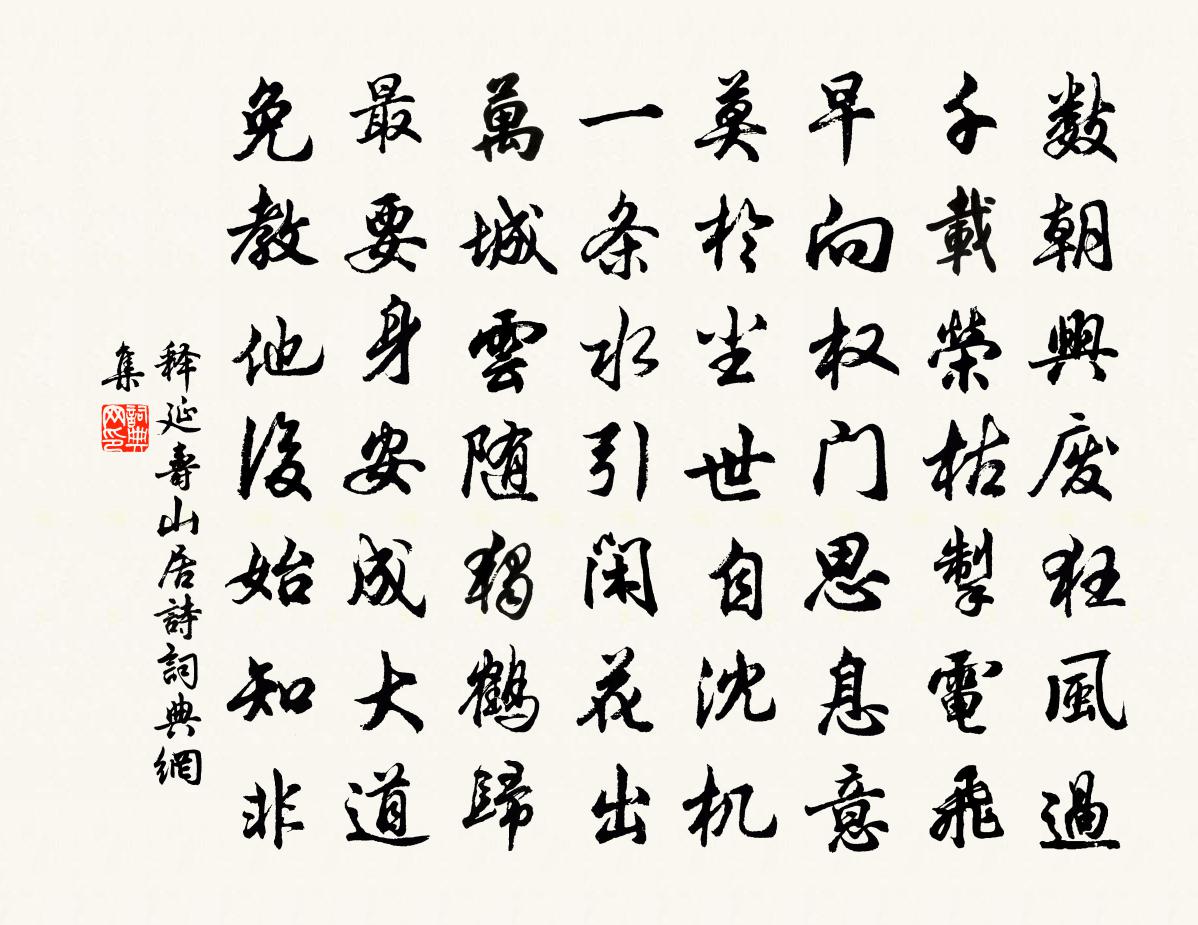 数朝興废狂風過
千載榮枯掣電飛
早向权门思息意
莫於尘世自沈机
一条水引闲花出
萬城雲随独鹤歸
最要身安成大道
免教他後始知非
释延壽山居詩詞典網
集
詞典网印